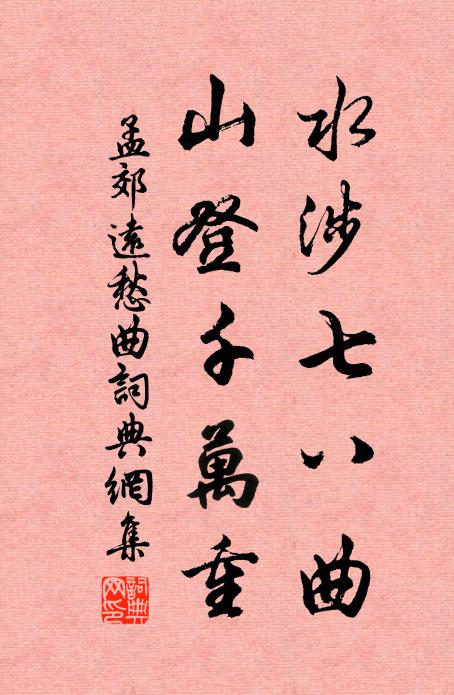 水涉七八曲
山登千萬重
孟郊遠愁曲詞典網集
詞典網印